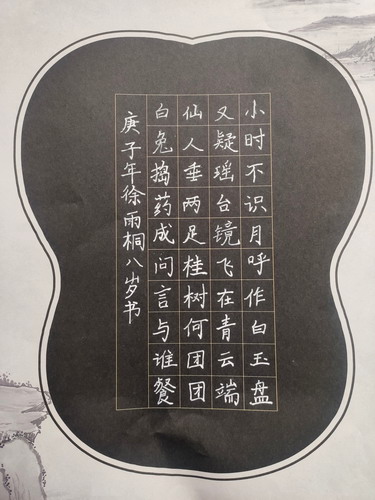 小时不识月呼作白玉盘
又疑瑶台镜飞在青云端
仙人垂两足桂树何团团
白兔捣药成问言与谁餐
庚子年徐雨桐八岁书